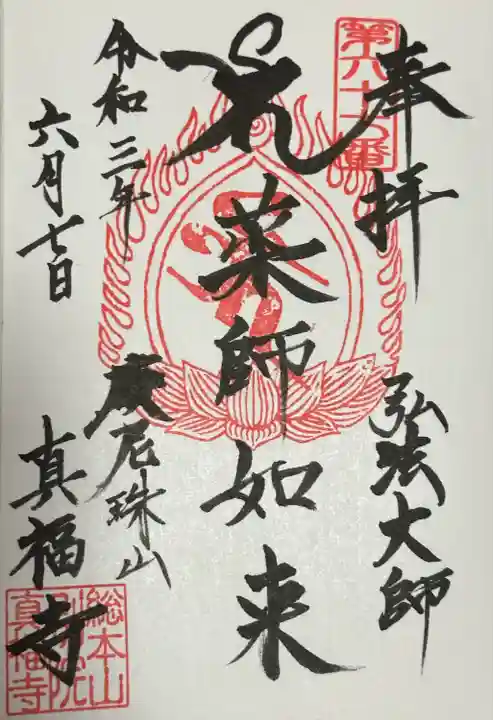 奉拝
弘法大師
薬師如来
令和三年
六月七日
摩尼珠山
真福寺
総本山
別院
真福寺